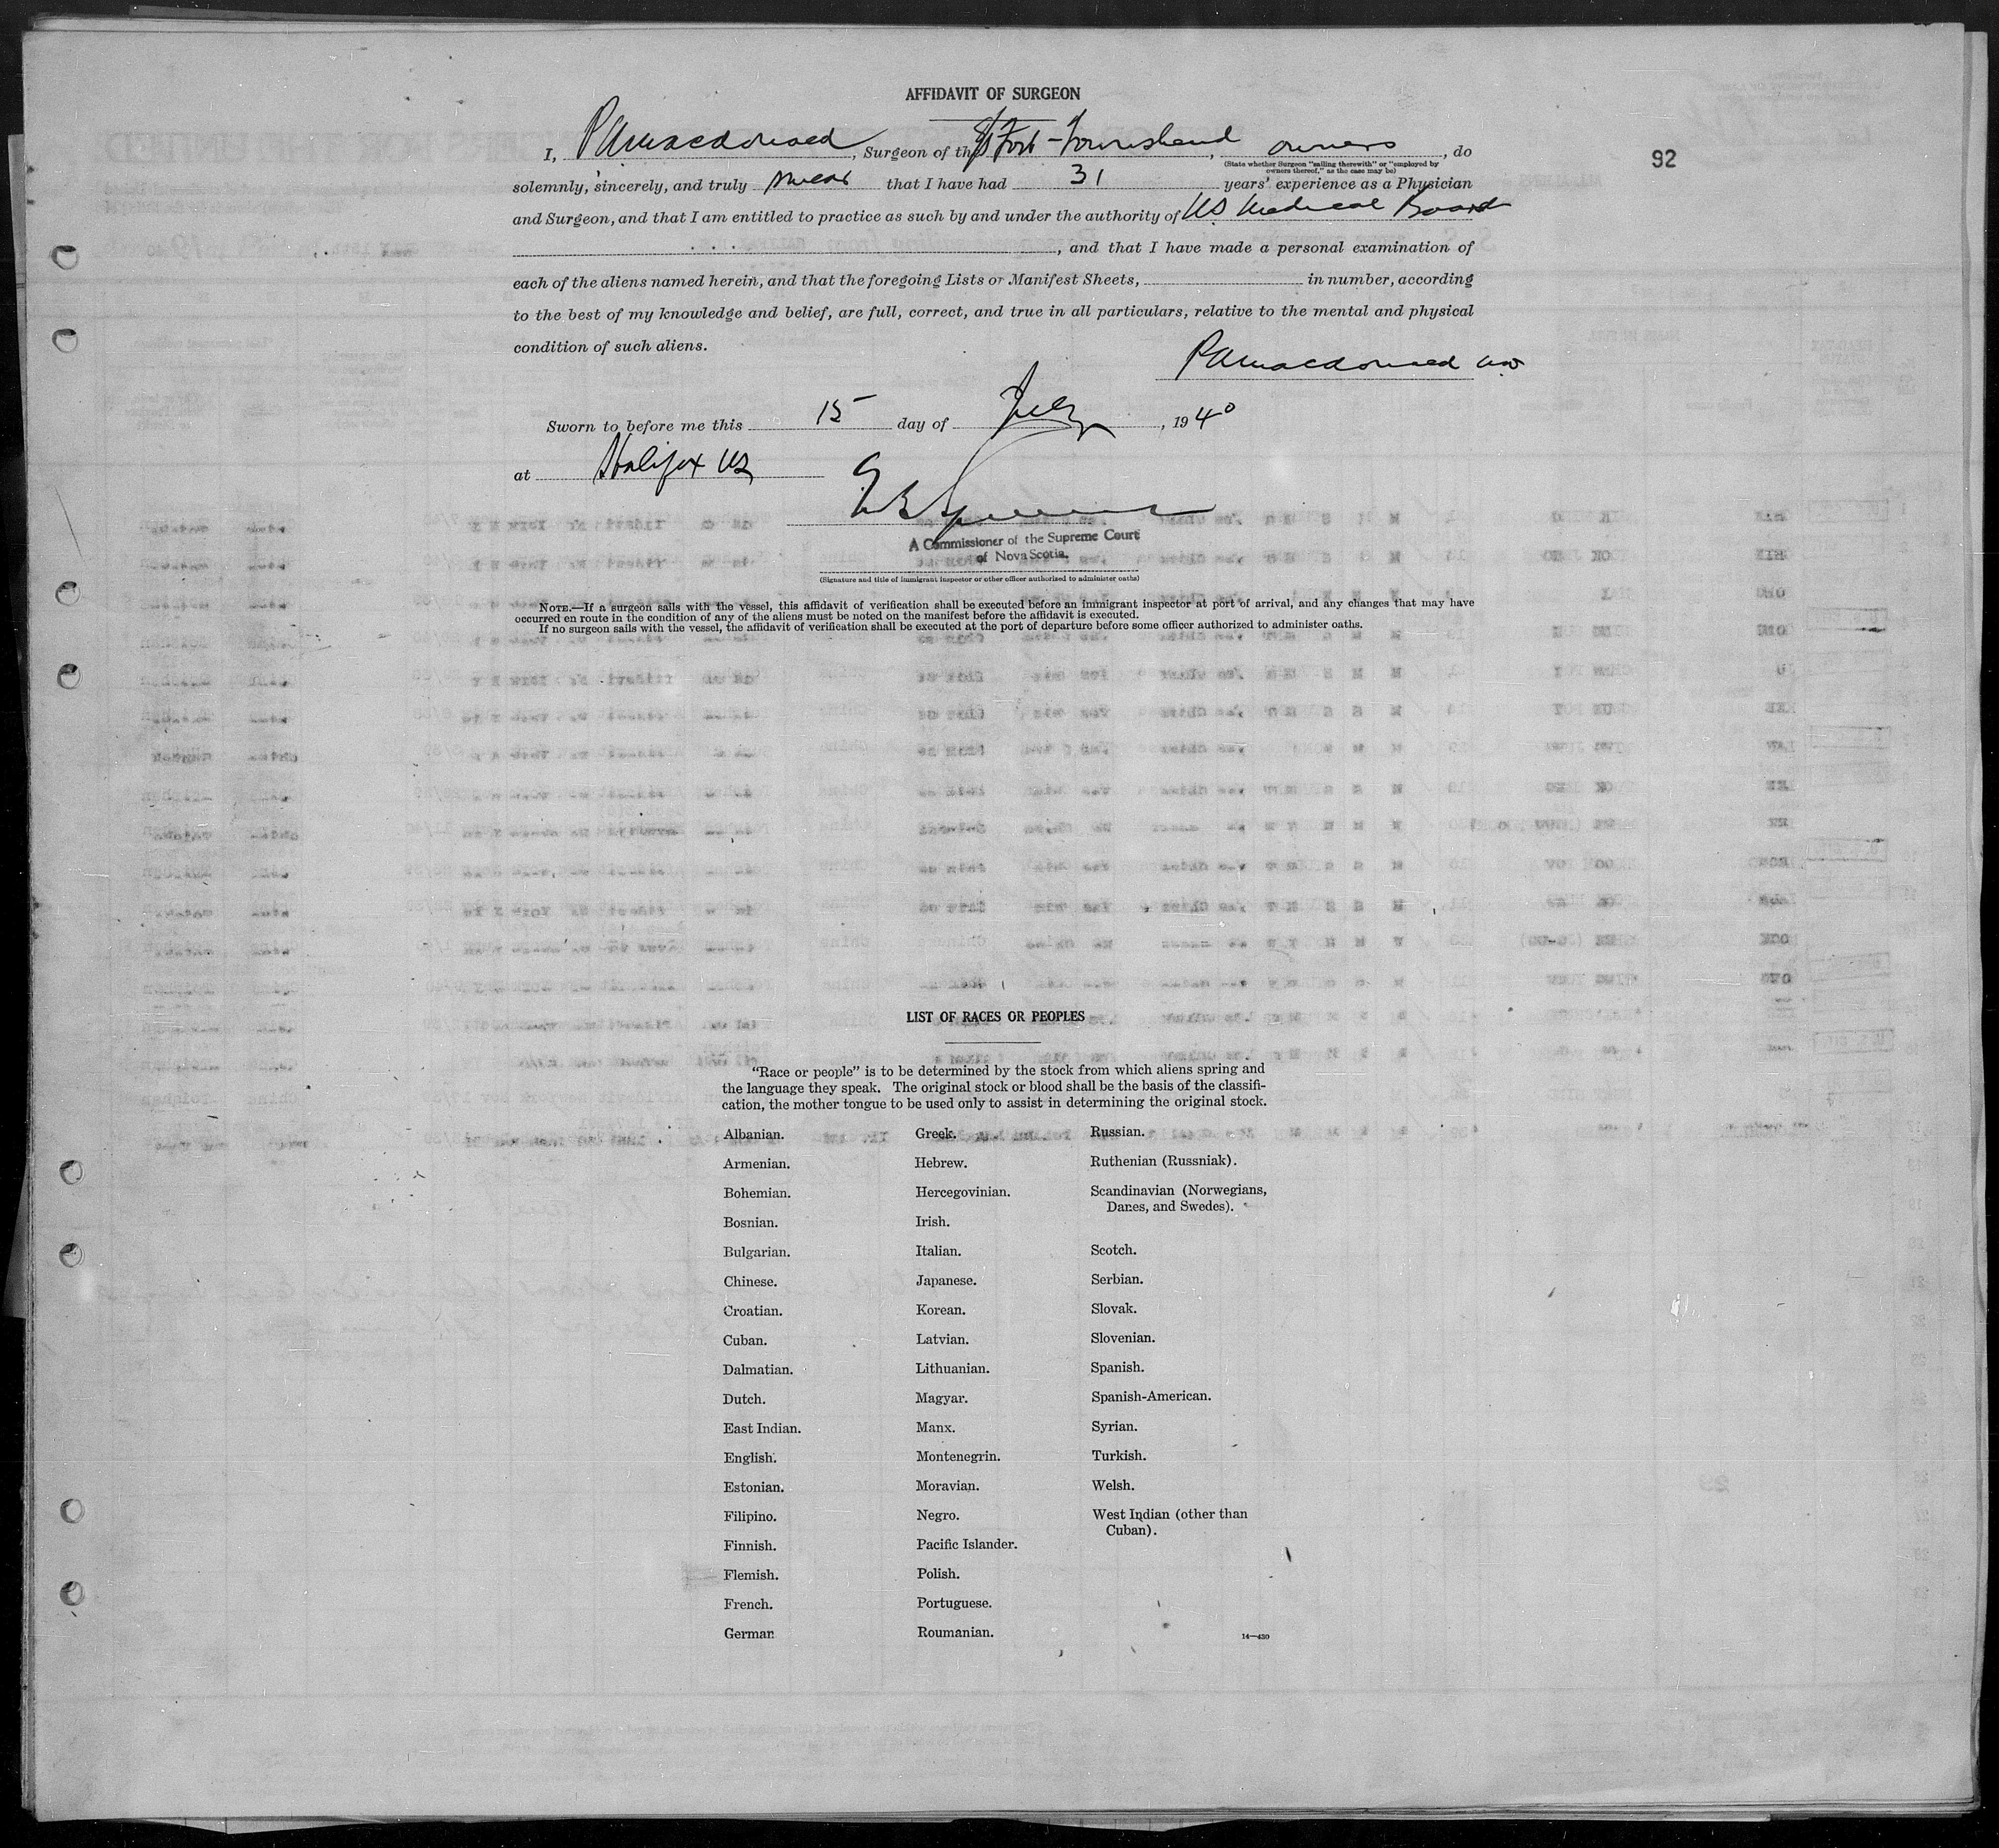 AFFIDAVIT OF SURGEON
I, P A Macdonald, Surgeon of the SS Fort-Townshend, owners, do
(State whether Surgeon "sailing therewith" or "employed by
owners thereof," as the case may be)
92
solemnly, sincerely, and truly swear that I have had 31 years' experience as a Physician
and Surgeon, and that I am entitled to practice as such by and under the authority of NS Medical Board
, and that I have made a personal examination of
each of the aliens named herein, and that the foregoing Lists or Manifest Sheets, in number, according
to the best of my knowledge and belief, are full, correct, and true in all particulars, relative to the mental and physical
condition of such aliens.
P A Macdonald MD
Sworn to before me this 15 day of July, 1940
at Halifax NS
A Commissioner of the Supreme Court
of Nova Scotia.
(Signature and title of immigrant inspector or other officer authorized to administer oaths)
NOTE.—If a surgeon sails with the vessel, this affidavit of verification shall be executed before an immigrant inspector at port of arrival, and any changes that may have
occurred en route in the condition of any of the aliens must be noted on the manifest before the affidavit is executed.
If no surgeon sails with the vessel, the affidavit of verification shall be executed at the port of departure before some officer authorized to administer oaths.
LIST OF RACES OR PEOPLES
"Race or people" is to be determined by the stock from which aliens spring and
the language they speak. The original stock or blood shall be the basis of the classifi-
cation, the mother tongue to be used only to assist in determining the original stock.
Albanian.
Armenian.
Bohemian.
Bosnian.
Bulgarian.
Chinese.
Croatian.
Cuban.
Dalmatian.
Dutch.
East Indian.
English.
Estonian.
Filipino.
Finnish.
Flemish.
French.
German
Greek.
Hebrew.
Hercegovinian.
Irish.
Italian.
Japanese.
Korean.
Latvian.
Lithuanian.
Magyar.
Manx.
Montenegrin.
Moravian.
Negro.
Pacific Islander.
Polish.
Portuguese.
Roumanian.
Russian.
Ruthenian (Russniak).
Scandinavian (Norwegians,
Danes, and Swedes).
Scotch.
Serbian.
Slovak.
Slovenian.
Spanish.
Spanish-American.
Syrian.
Turkish.
Welsh.
West Indian (other than
Cuban).
14—430